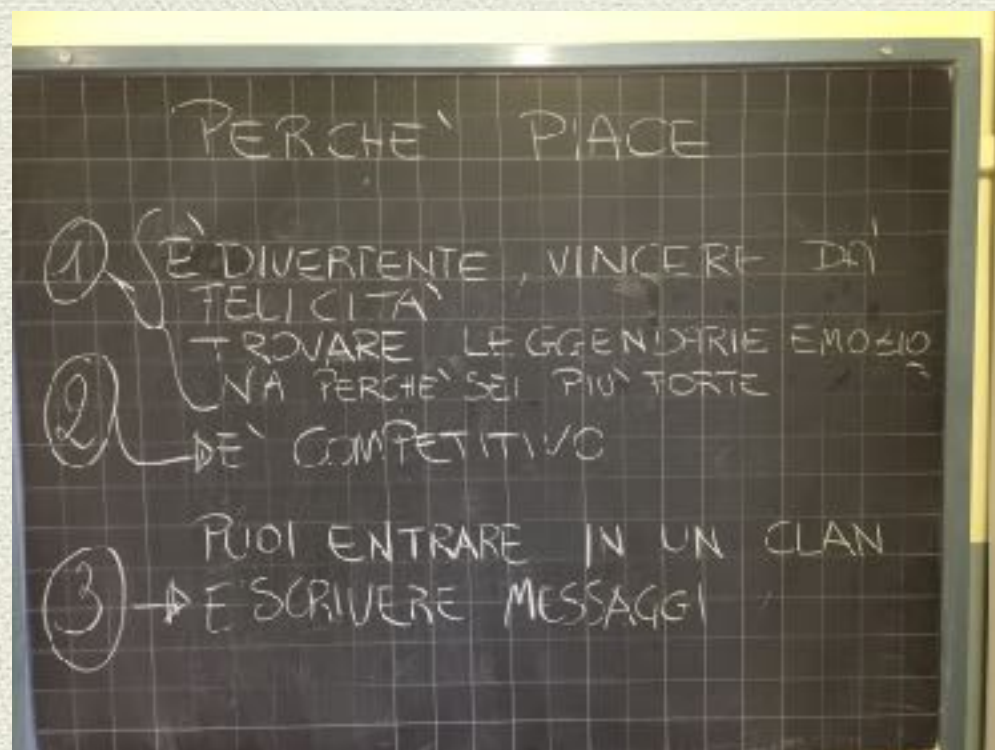 PERCHE` PIACE
1 E` DIVERTENTE, VINCERE DA`
FELICITA`
TROVARE LEGGENDARIE EMOZIO
NA PERCHE` SEI PIU` FORTE
2 E` COMPETITIVO
PUOI ENTRARE IN UN CLAN
3 E SCRIVERE MESSAGGI